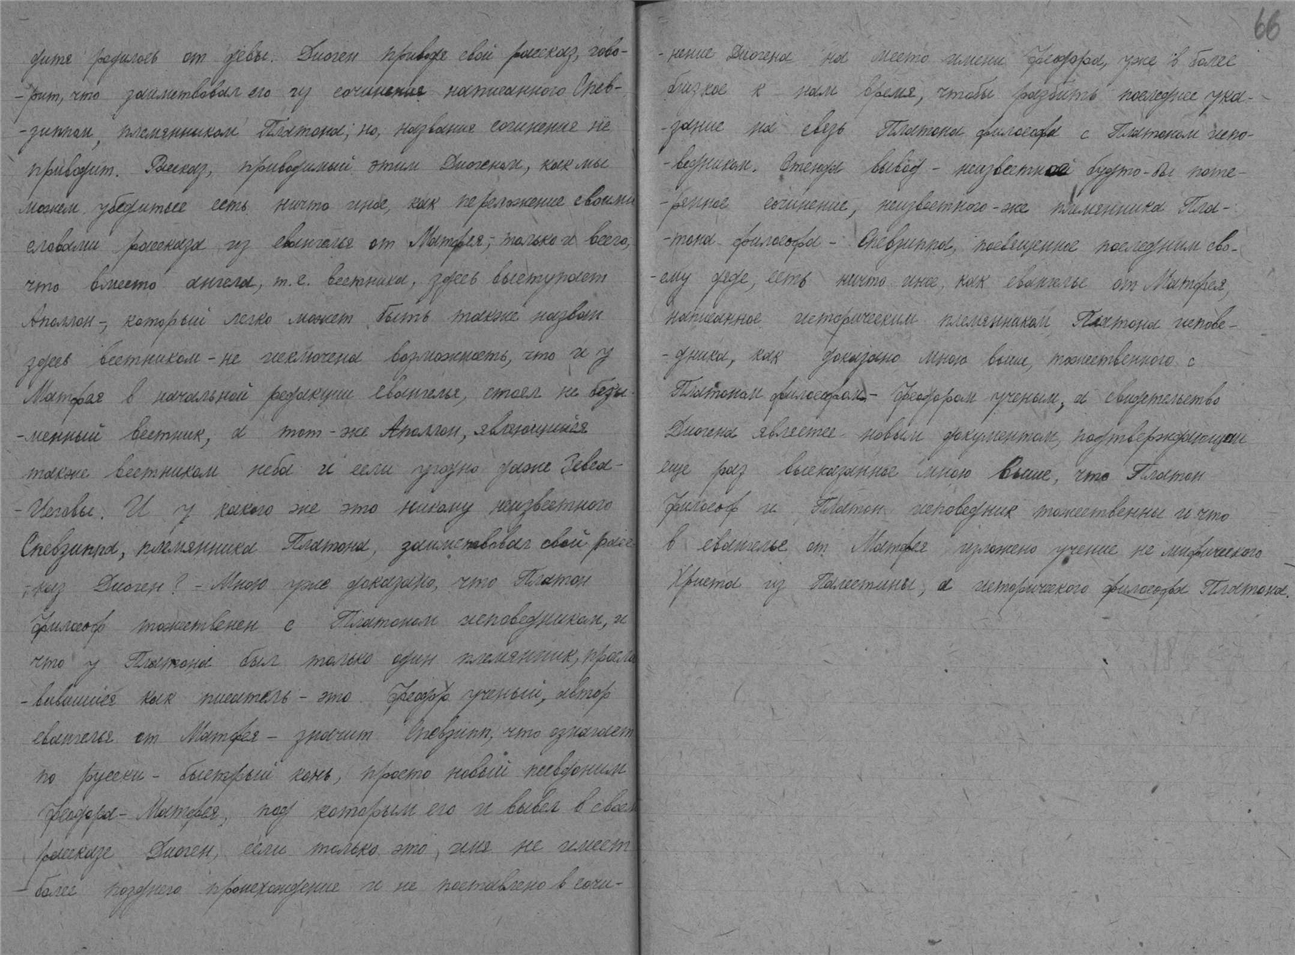 дитя родилось от девы. Диоген приводя свой рассказ, гово-
-рит, что заимствовал его из сочинения написанного Спев-
-зиппом, племянником Платона; но, названия сочинения не
приводит. Рассказ, приводимый этим Диогеном, как мы
можем убедиться есть ничто иное, как переложение своими
словами рассказа из евангелья от Матфея, только и всего,
что вместо ангела, т.е. вестника, здесь выступает
Аполлон-, который легко может быть также назван
здесь вестником - не исключена возможность, что и у
Матфея в начальной редакции евангелья, стоял не безы-
-менный вестник, а тот-же Аполлон, являющийся
также вестником неба и если угодно даже Зевса-
-Иеговы. И у какого же это никому неизвестного
Спевзиппа, племянника Платона, заимствовал свой расс-
-каз Диоген? - Мною уже доказано, что Платон
философ тожественен с Платоном исповедником, и
что у Платона был только один племянник, просла-
-вившийся как писатель - это Феофор ученый, автор
евангелья от Матфея - значит Спевзипп, что означает
по русски - быстрый конь, просто новый псевдоним
Феофора - Матфея, под которым его и вывел в своем
рассказе Диоген, если только это, имя не имеет
более позднего происхождения и не поставлено в сочи-
66
-нение Диогена на место имени Феофора, уже в более
близкое к нам время, чтобы разбить последнее ука-
-зание на связь Платона философа с Платоном испо-
-ведником. Отсюда вывод - неизвестное будто-бы поте-
-рянное сочинение, неизвестного-же племянника Пла-
-тона философа - Спевзиппа, посвященное последним сво-
-ему дяде, есть ничто иное, как евангелье от Матфея,
написанное историческим племянником Платона испове-
-дника, как доказано мною выше, тожественного с
Платоном философом - Феофором ученым, и свидетельство
Диогена является новым документом, подтверждающим
еще раз высказанное мною выше, что Платон
философ и Платон исповедник тожественны и что
в евангелье от Матфея изложено учение не мифического
Христа из Палестины, а исторического философа Платона.